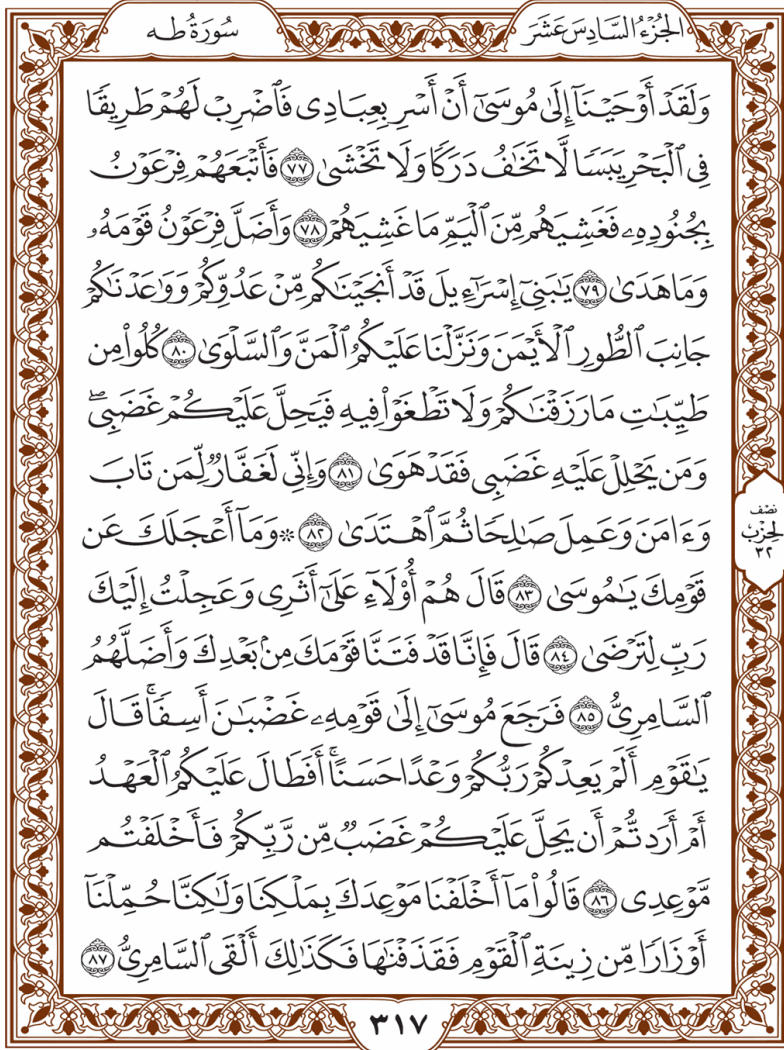 الجُزْءُ السَّادِسَ عَشَرَ
سُورَةُ طه
وَلَقَدْ أَوْحَيْنَآ إِلَىٰ مُوسَىٰٓ أَنْ أَسْرِ بِعِبَادِى فَٱضْرِبْ لَهُمْ طَرِيقًا
فِى ٱلْبَحْرِ يَبَسًا لَّا تَخَٰفُ دَرَكًا وَلَا تَخْشَىٰ ٧٧ فَأَتْبَعَهُمْ فِرْعَوْنُ
بِجُنُودِهِۦ فَغَشِيَهُم مِّنَ ٱلْيَمِّ مَا غَشِيَهُمْ ٧٨ وَأَضَلَّ فِرْعَوْنُ قَوْمَهُۥ
وَمَا هَدَىٰ ٧٩ يَٰبَنِىٓ إِسْرَٰٓءِيلَ قَدْ أَنجَيْنَٰكُم مِّنْ عَدُوِّكُمْ وَوَٰعَدْنَٰكُمْ
جَانِبَ ٱلطُّورِ ٱلْأَيْمَنَ وَنَزَّلْنَا عَلَيْكُمُ ٱلْمَنَّ وَٱلسَّلْوَىٰ ٨٠ كُلُوا۟ مِن
طَيِّبَٰتِ مَا رَزَقْنَٰكُمْ وَلَا تَطْغَوْا۟ فِيهِ فَيَحِلَّ عَلَيْكُمْ غَضَبِى ۖ
وَمَن يَحْلِلْ عَلَيْهِ غَضَبِى فَقَدْ هَوَىٰ ٨١ وَإِنِّى لَغَفَّارٌ لِّمَن تَابَ
وَءَامَنَ وَعَمِلَ صَٰلِحًا ثُمَّ ٱهْتَدَىٰ ٨٢ ۞ وَمَآ أَعْجَلَكَ عَن
قَوْمِكَ يَٰمُوسَىٰ ٨٣ قَالَ هُمْ أُو۟لَآءِ عَلَىٰٓ أَثَرِى وَعَجِلْتُ إِلَيْكَ
رَبِّ لِتَرْضَىٰ ٨٤ قَالَ فَإِنَّا قَدْ فَتَنَّا قَوْمَكَ مِنۢ بَعْدِكَ وَأَضَلَّهُمُ
ٱلسَّامِرِىُّ ٨٥ فَرَجَعَ مُوسَىٰٓ إِلَىٰ قَوْمِهِۦ غَضْبَٰنَ أَسِفًا ۚ قَالَ
يَٰقَوْمِ أَلَمْ يَعِدْكُمْ رَبُّكُمْ وَعْدًا حَسَنًا ۚ أَفَطَالَ عَلَيْكُمُ ٱلْعَهْدُ
أَمْ أَرَدتُّمْ أَن يَحِلَّ عَلَيْكُمْ غَضَبٌ مِّن رَّبِّكُمْ فَأَخْلَفْتُم
مَّوْعِدِى ٨٦ قَالُوا۟ مَآ أَخْلَفْنَا مَوْعِدَكَ بِمَلْكِنَا وَلَٰكِنَّا حُمِّلْنَآ
أَوْزَارًا مِّن زِينَةِ ٱلْقَوْمِ فَقَذَفْنَٰهَا فَكَذَٰلِكَ أَلْقَى ٱلسَّامِرِىُّ ٨٧
نِصْف
الحِزْب
٣٢
٣١٧